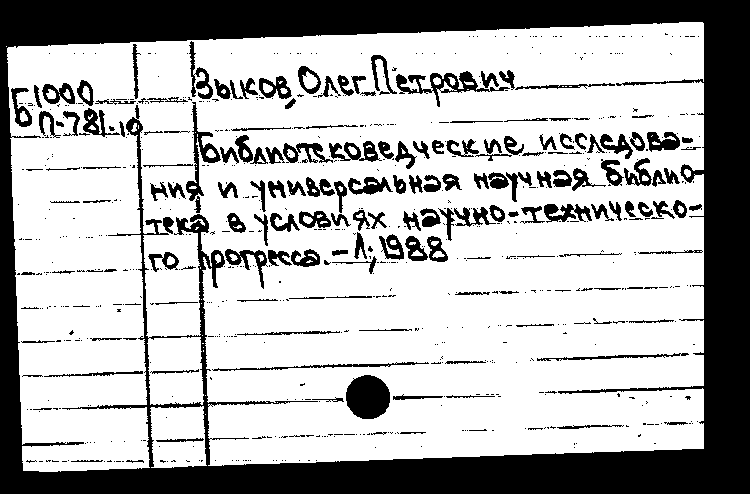 Зыков, Олег Петрович
Б1000
П-781.10
Библиотековедческие исследова-
ния и универсальная научная библио-
тека в условиях научно-техническо-
го прогресса. – Л., 1988